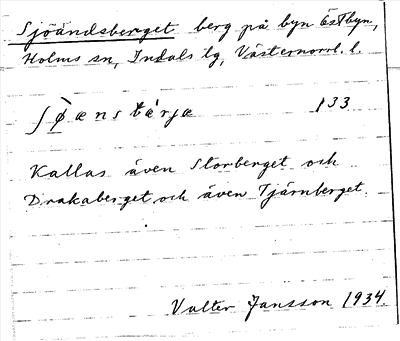 Sjöändsberget berg på byn Östbyn,
Holms sn, Indals tg, Västernorrl. l.
133
Kallas även Storberget och
Drakaberget och även Tjärnberget.
Valter Jansson 1934.